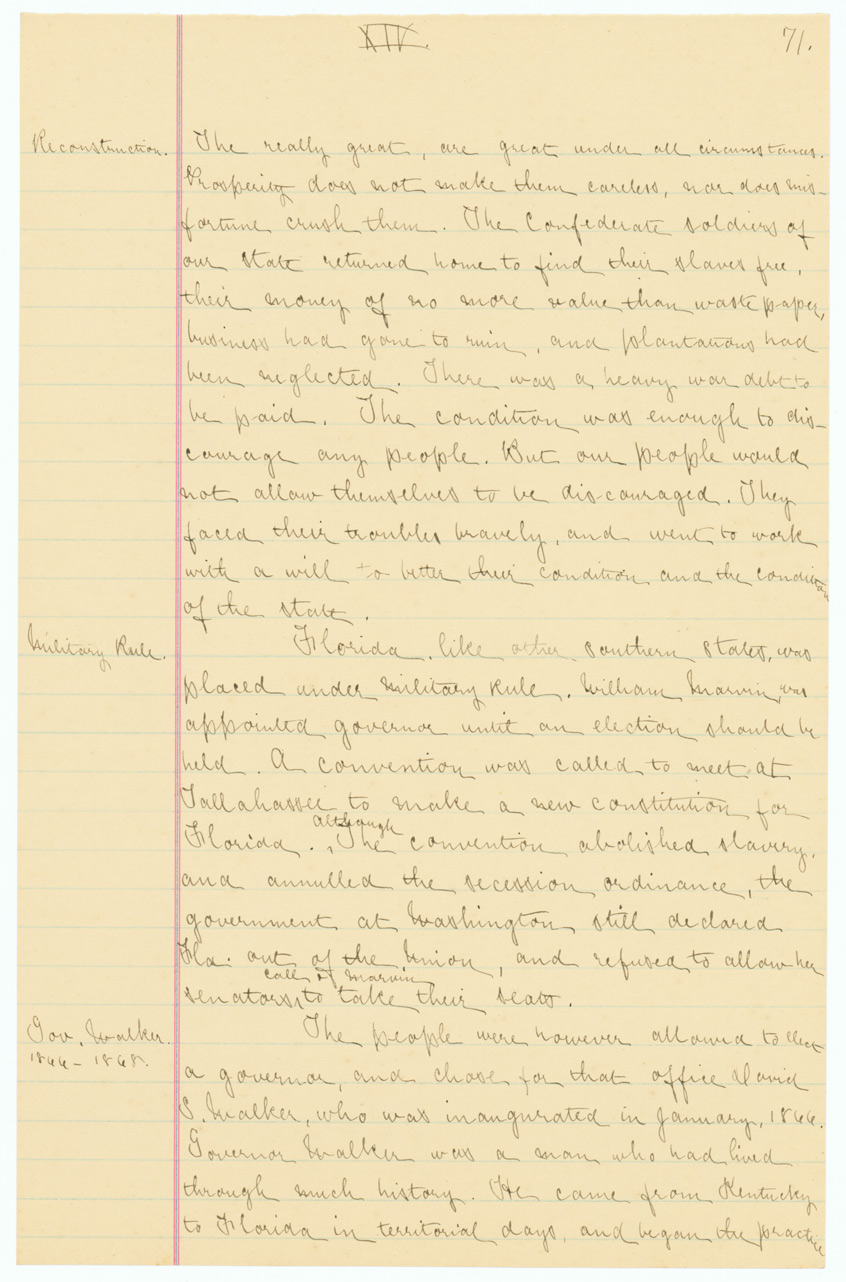 XIV.
71.
Reconstruction.
The really great, are great under all circumstances.
Prosperity does not make them careless, nor does mis-
fortune crush them. The Confederate soldiers of
our state returned home to find their slaves free,
their money of no more value than waste paper,
business had gone to ruin, and plantations had
been neglected. There was a heavy war debt to
be paid. The condition was enough to dis-
courage any people. But our people would
not allow themselves to be dis-couraged. They
faced their troubles bravely, and went to work
with a will to better their condition and the condition
of the state.
Military Rule.
Florida, like other southern states, was
placed under military rule. William Marvin, was
appointed governor until an election should be
held. A convention was called to meet at
Tallahassee to make a new constitution for
although
Florida. The convention abolished slavery,
and annulled the secession ordinance, the
government at Washington still declared
Fla. out of the Union, and refused to allow her
call of Marvin
senators, to take their seats.
Gov. Walker.
1866 - 1868.
The people were however allowed to elect
a governor, and chose for that office David
S. Walker, who was inaugurated in January, 1866.
Governor Walker was a man who had lived
through much history. He came from Kentucky
to Florida in territorial days, and began the practice